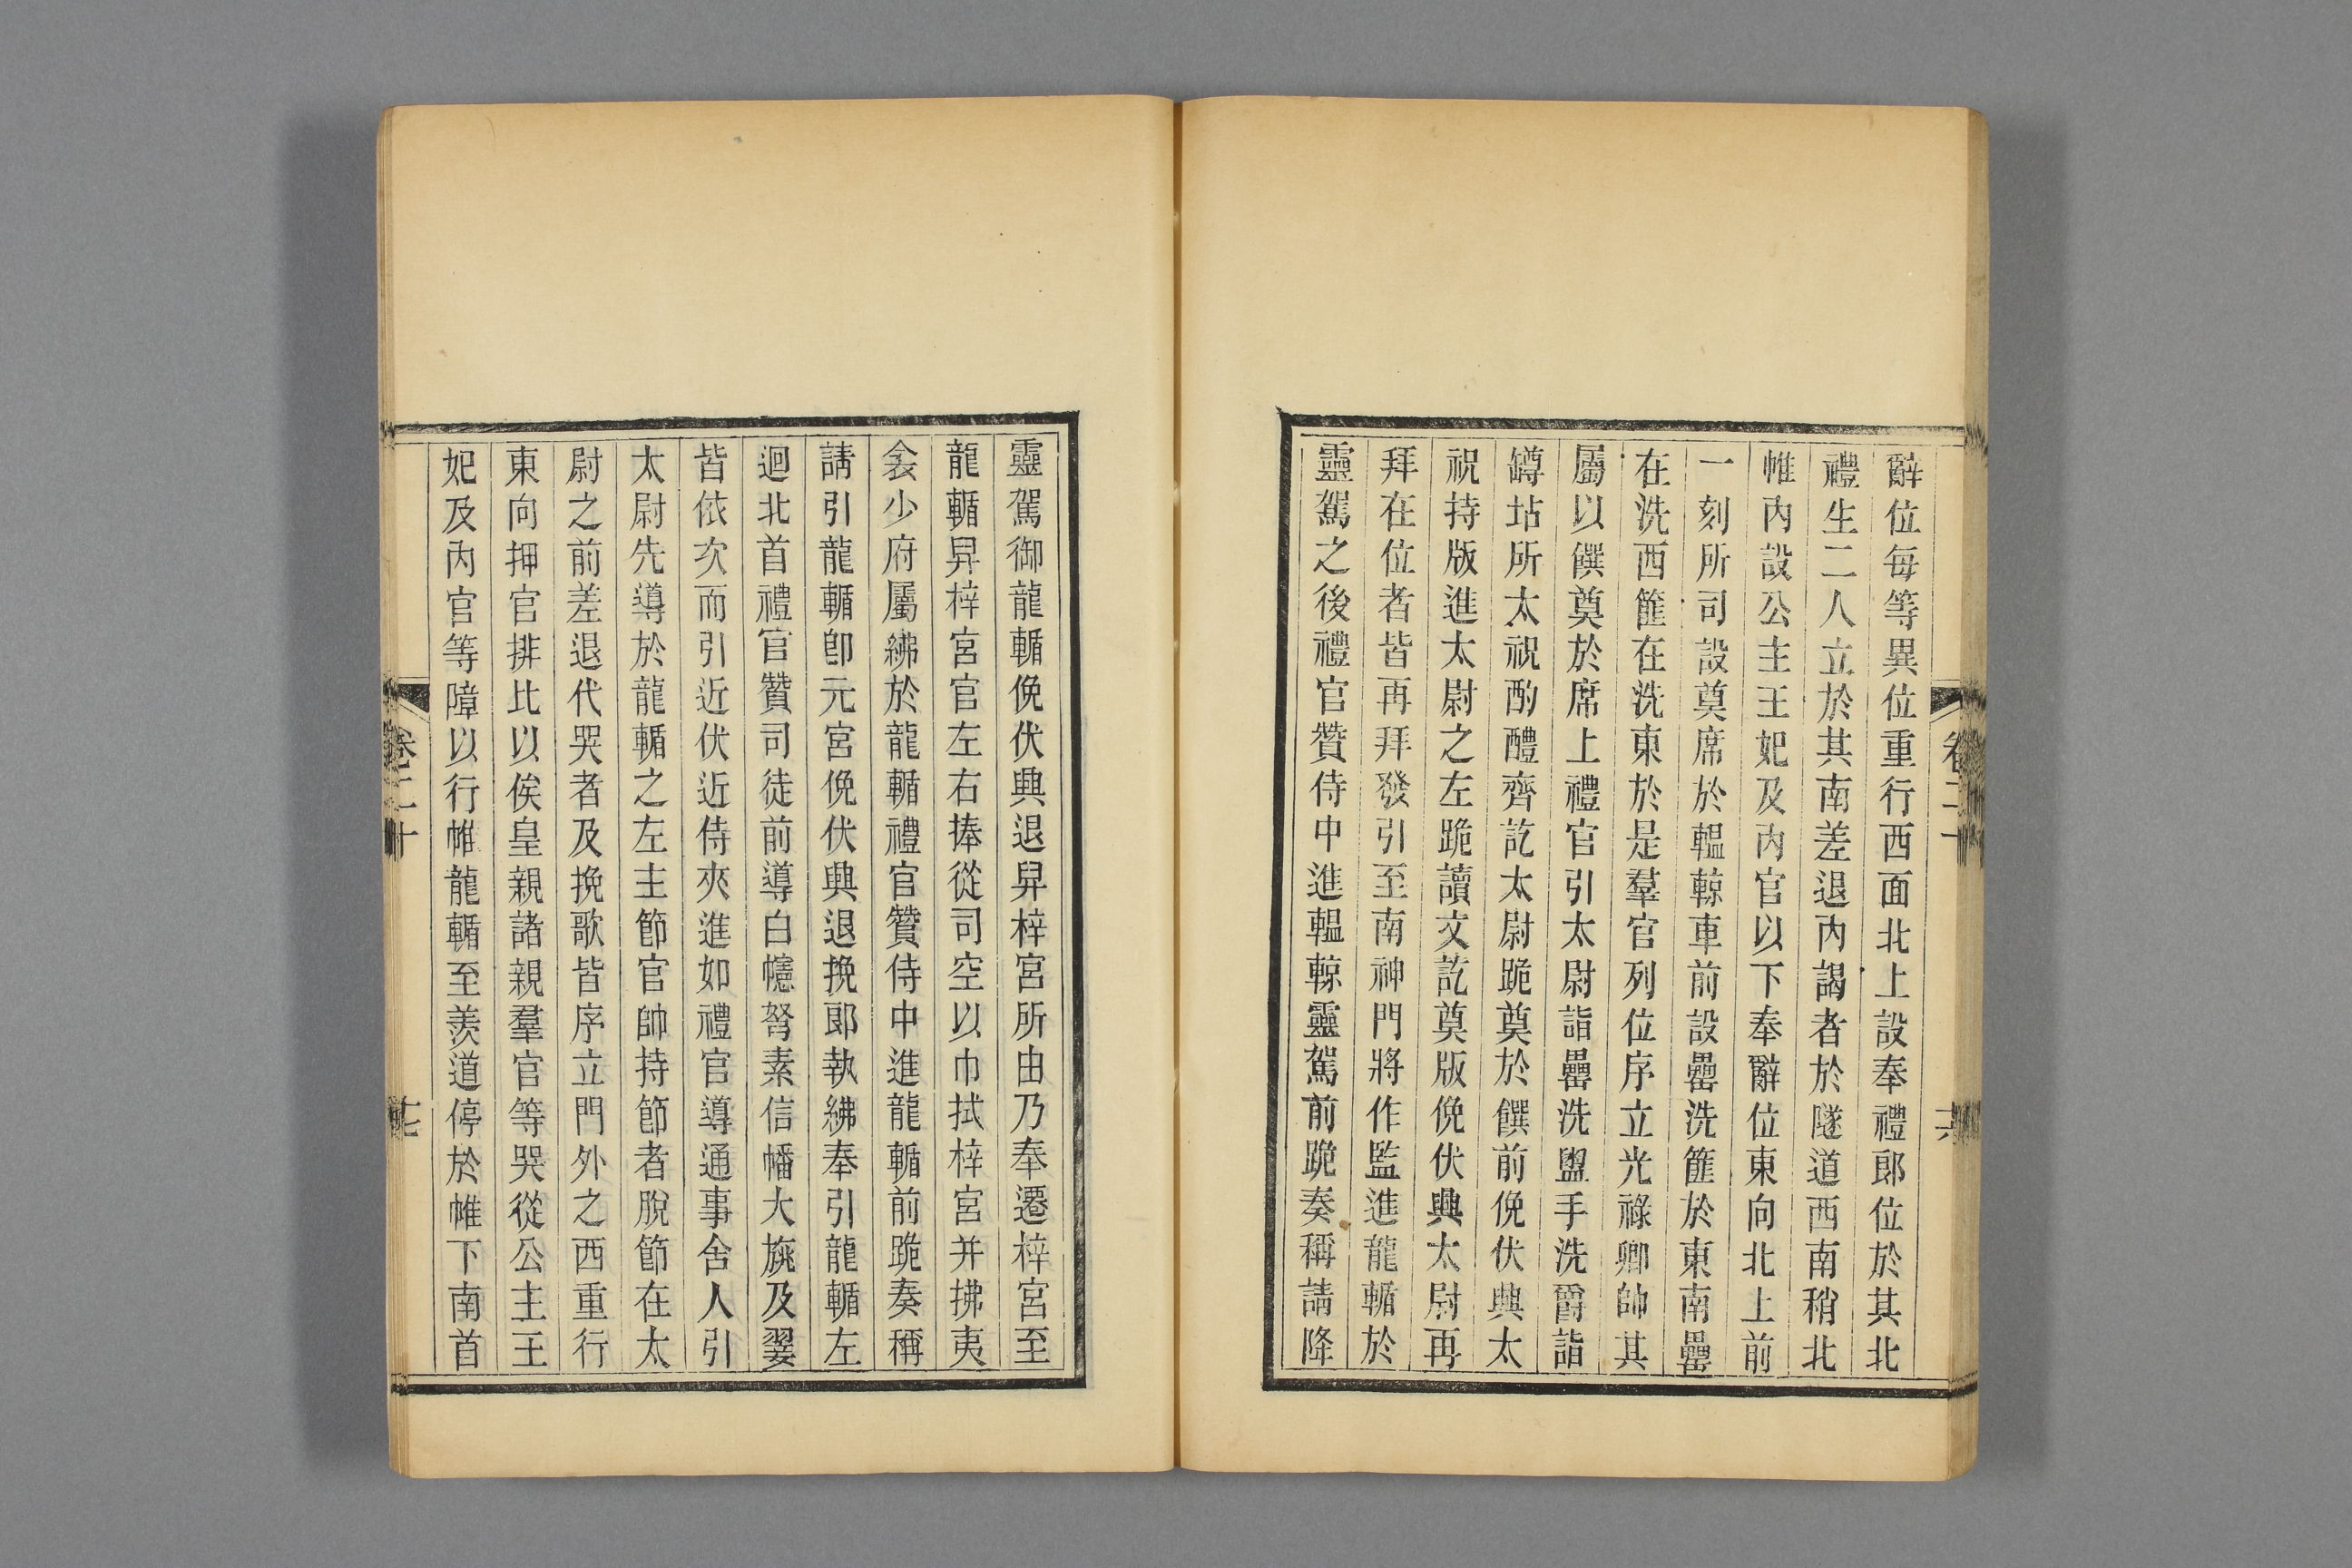 辭位每等異位重行西面北上設奉禮郎位於其北
禮生二人立於其南差退內謁者於隧道西南稍北
帷內設公主王妃及內官以下奉辭位東向北上前
一刻所司設奠席於轀輬車前設罍洗篚於東南罍
在洗西篚在洗東於是羣官列位序立光祿卿帥其
屬以饌奠於席上禮官引太尉詣罍洗盥手洗爵詣
罇坫所太祝酌醴齊訖太尉跪奠於饌前俛伏興太
祝持版進太尉之左跪讀文訖奠版俛伏興太尉再
拜在位者皆再拜發引至南神門將作監進龍輴於
靈駕之後禮官贊侍中進轀輬靈駕前跪奏稱請降
卷二十
十六
靈駕御龍輴俛伏興退舁梓宮所由乃奉遷梓宮至
龍輴舁梓宮官左右捧從司空以巾拭梓宮并拂夷
衾少府屬紼於龍輴禮官贊侍中進龍輴前跪奏稱
請引龍輴卽元宮俛伏興退挽郎執紼奉引龍輴左
迴北首禮官贊司徒前導白幰弩素信幡大旐及翣
皆依次而引近伏近侍夾進如禮官導通事舍人引
太尉先導於龍輴之左主節官帥持節者脫節在太
尉之前差退代哭者及挽歌皆序立門外之西重行
東向押官排比以俟皇親諸親羣官等哭從公主王
妃及內官等障以行帷龍輴至羨道停於帷下南首
卷二十
十七